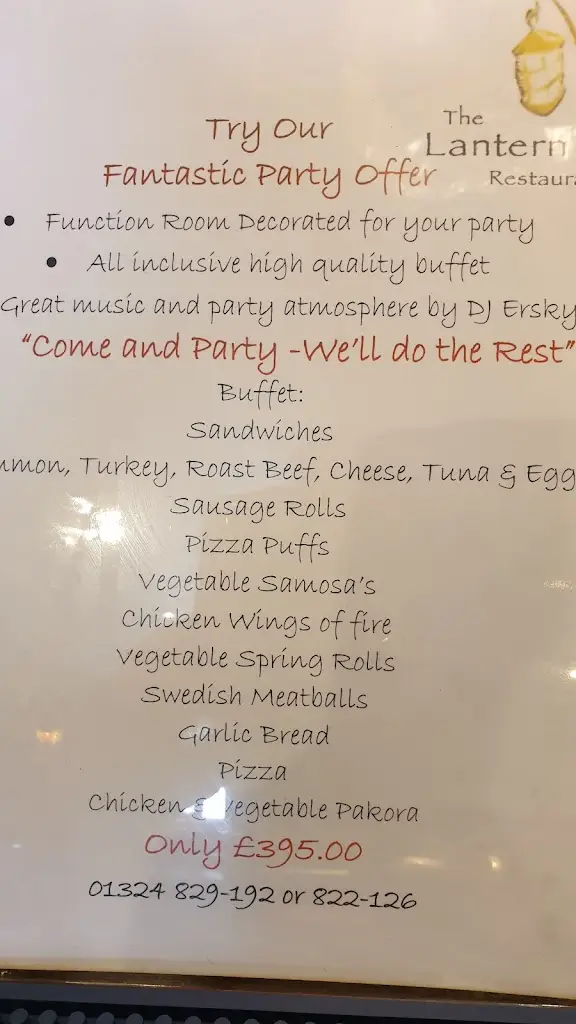 The
Try Our
Lantern
Fantastic Party Offer
• Function Room Decorated for your party
• All inclusive high quality buffet
Great music and party atmosphere by DJ Ersky
"Come and Party -We'll do the Rest"
Buffet:
Sandwiches
Turkey, Roast Beef, Cheese, Tuna & Egg
Sausage Rolls
Pizza Puffs
Vegetable Samosa's
Chicken Wings of fire
Vegetable Spring Rolls
Swedish Meatballs
Garlic Bread
Pizza
Chicken & Vegetable Pakora
Only £395.00
01324 829-192 or 822-126